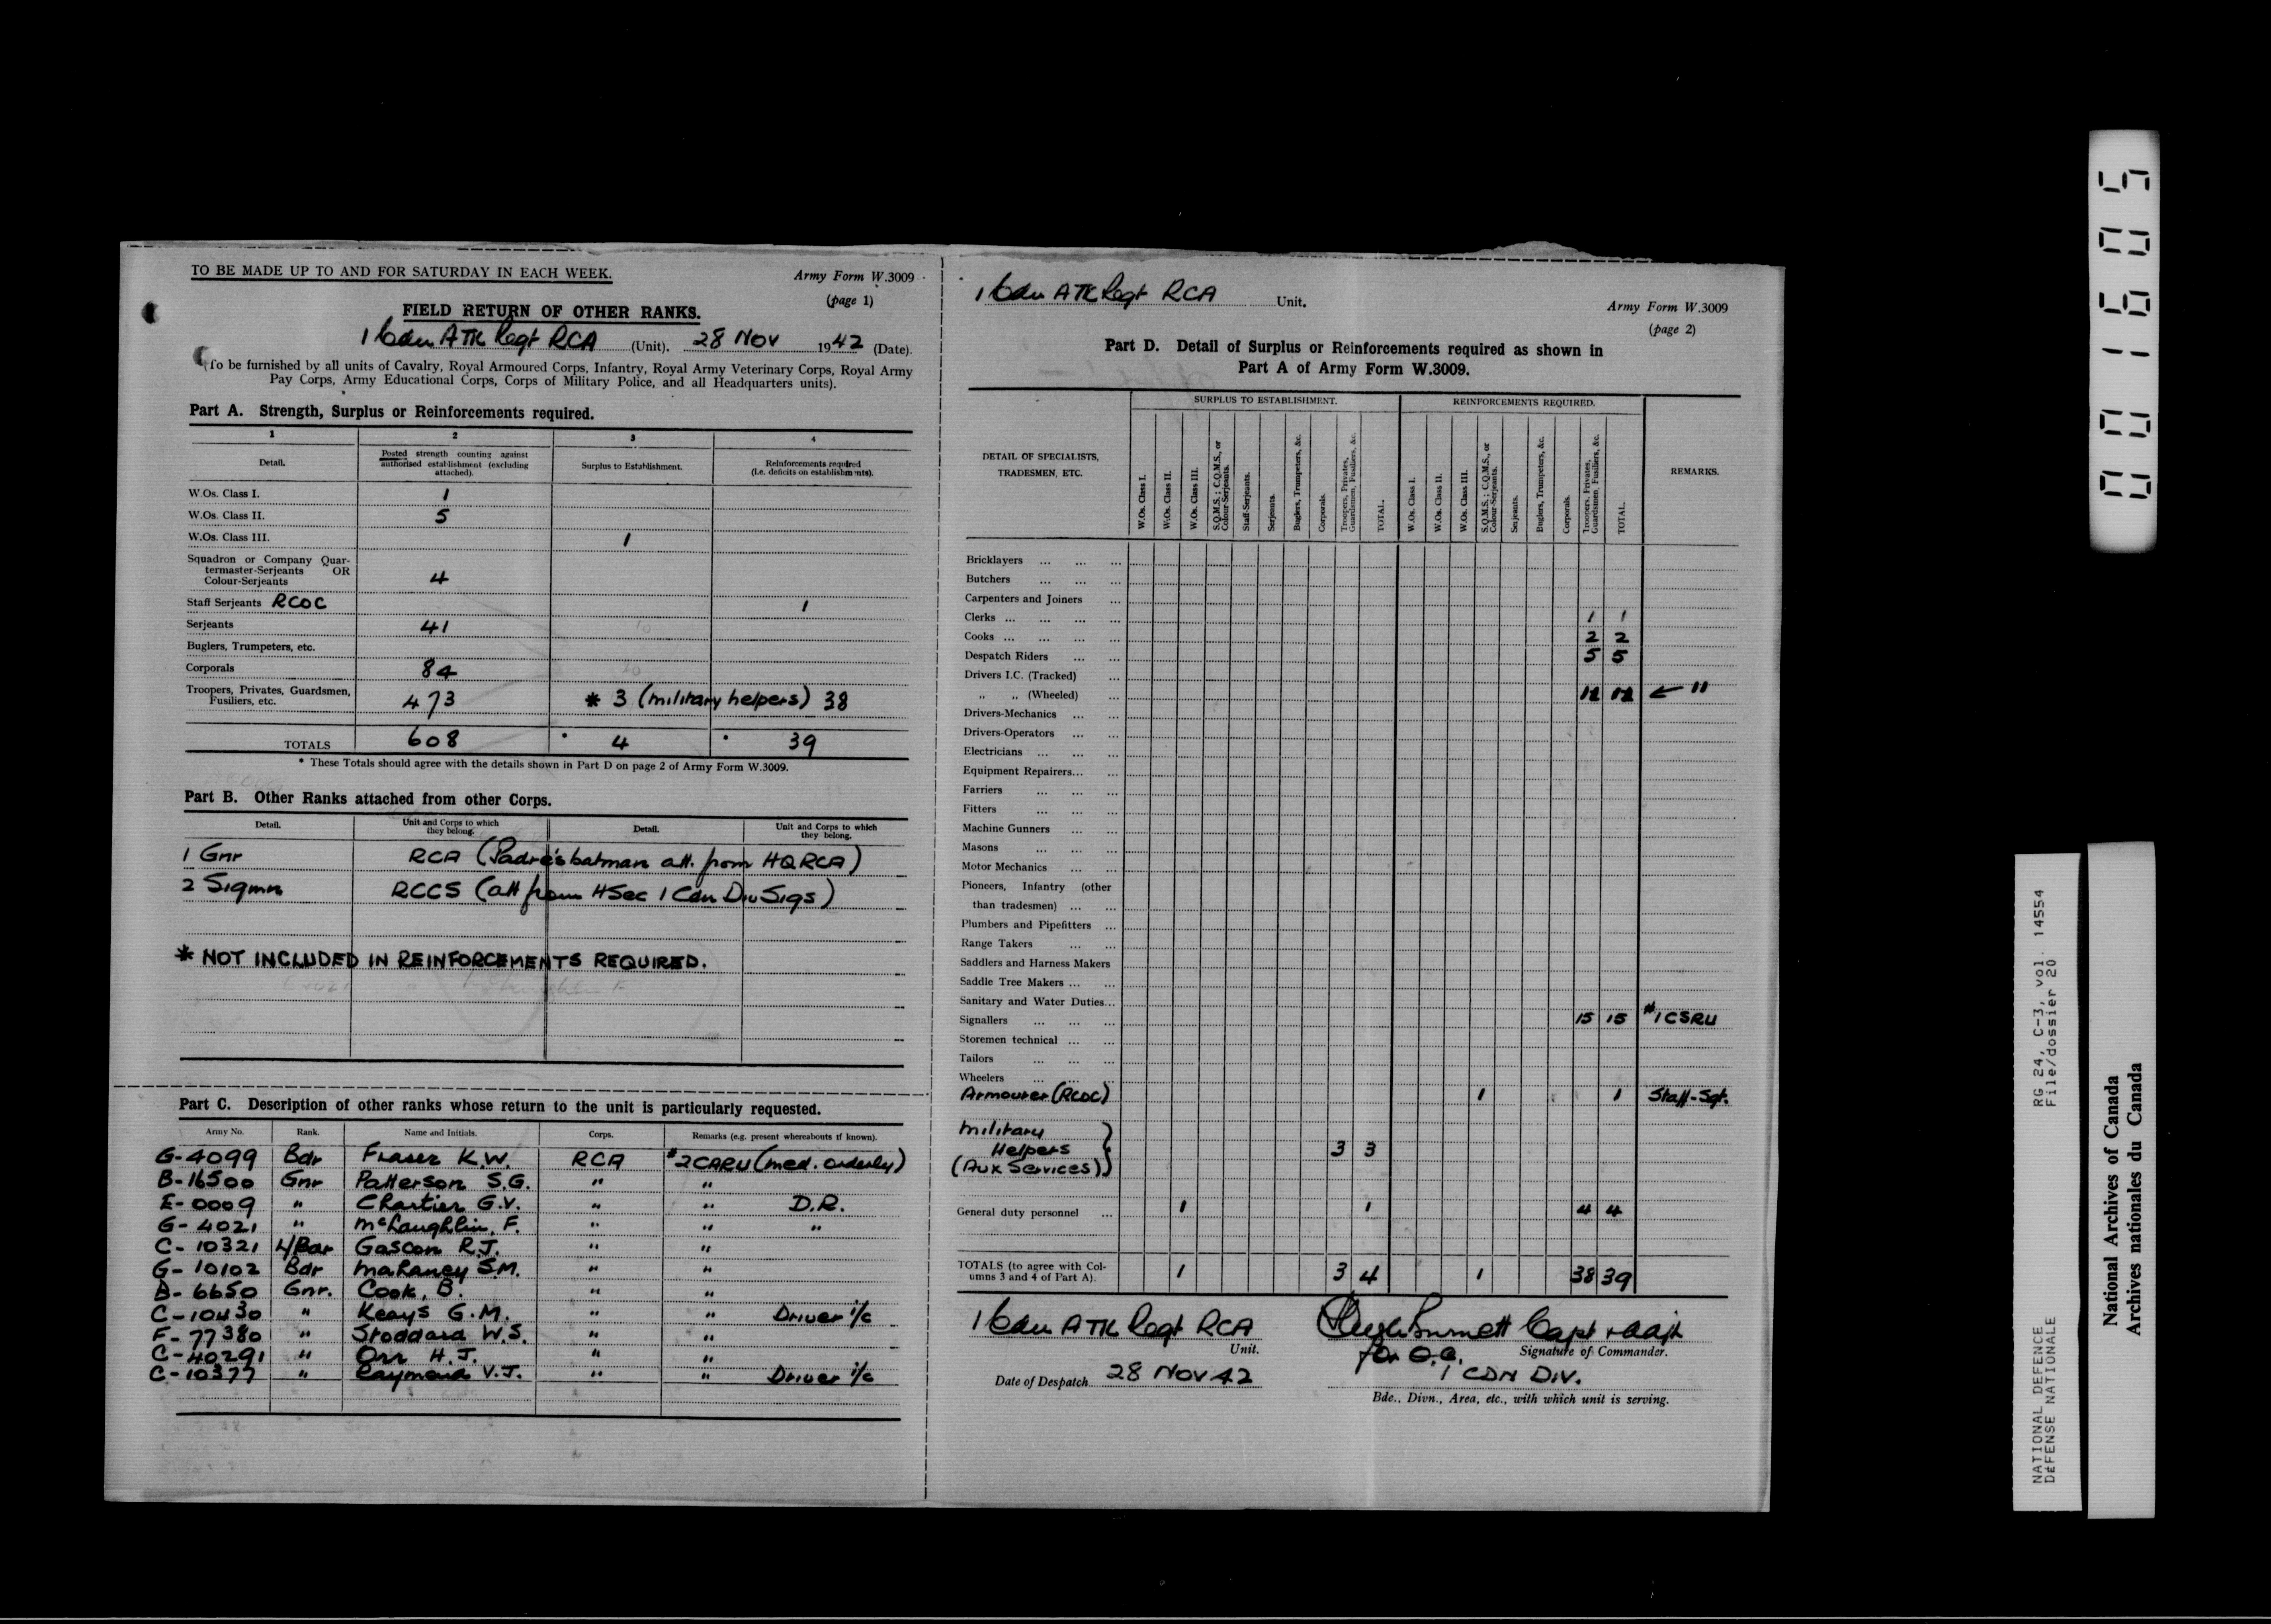 TO BE MADE UP TO AND FOR SATURDAY IN EACH WEEK.
Army Form W.3009
(page 1)
FIELD RETURN OF OTHER RANKS.
1 Cdn ATK Regt RCA (Unit). 28 Nov 1942 (Date).
(To be furnished by all units of Cavalry, Royal Armoured Corps, Infantry, Royal Army Veterinary Corps, Royal Army
Pay Corps, Army Educational Corps, Corps of Military Police, and all Headquarters units).
Part A. Strength, Surplus or Reinforcements required.
1 2 3 4
Detail. Posted strength counting against authorised establishment (excluding attached). Surplus to Establishment. Reinforcements required (i.e. deficits on establishments).
W.Os. Class I. 1
W.Os. Class II. 5
W.Os. Class III. 1
Squadron or Company Quar-
termaster-Serjeants OR
Colour-Serjeants 4
Staff Serjeants RCOC 1
Serjeants 41
Buglers, Trumpeters, etc.
Corporals 84
Troopers, Privates, Guardsmen,
Fusiliers, etc. 473 * 3 (military helpers) 38
TOTALS 608 * 4 * 39
* These Totals should agree with the details shown in Part D on page 2 of Army Form W.3009.
Part B. Other Ranks attached from other Corps.
Detail. Unit and Corps to which they belong. Detail. Unit and Corps to which they belong.
1 Gnr RCA (Padre's batman att. from HQRCA)
2 Sigmn RCCS (att from HSec 1 Cdn Div Sigs)
* NOT INCLUDED IN REINFORCEMENTS REQUIRED.
Part C. Description of other ranks whose return to the unit is particularly requested.
Army No. Rank. Name and Initials. Corps. Remarks (e.g. present whereabouts if known).
G-4099 Bdr Fraser K.W. RCA #2CARU (med. orderly)
B-16500 Gnr Patterson S.G. " "
E-0009 " Chartier G.V. " " D.R.
G-4021 " McLaughlin, F. " " "
C-10321 L/Bdr Gascon R.J. " "
G-10102 Bdr Mahaney S.M. " "
B-6650 Gnr. Cook, B. " "
C-10430 " Keays G.M. " " Driver i/c
F-77380 " Stoddard W.S. " "
C-40291 " Orr H.J. " "
C-10377 " Raymond V.J. " " Driver i/c
1 Cdn ATK Regt RCA Unit.
Army Form W.3009
(page 2)
Part D. Detail of Surplus or Reinforcements required as shown in
Part A of Army Form W.3009.
DETAIL OF SPECIALISTS, TRADESMEN, ETC. SURPLUS TO ESTABLISHMENT. REINFORCEMENTS REQUIRED. REMARKS.
W.Os. Class I. W.Os. Class II. W.Os. Class III. S.Q.M.S.; C.Q.M.S., or Colour-Serjeants. Staff-Serjeants. Serjeants. Buglers, Trumpeters, &c. Corporals. Troopers, Privates, Guardsmen, Fusiliers, &c. TOTAL. W.Os. Class I. W.Os. Class II. W.Os. Class III. S.Q.M.S.; C.Q.M.S., or Colour-Serjeants. Serjeants. Buglers, Trumpeters, &c. Corporals. Troopers, Privates, Guardsmen, Fusiliers, &c. TOTAL.
Bricklayers ... ... ...
Butchers ... ... ...
Carpenters and Joiners ...
Clerks ... ... ... ... 1 1
Cooks ... ... ... ... 2 2
Despatch Riders ... ... 5 5
Drivers I.C. (Tracked) ...
" " (Wheeled) ... 12 12 ← "
Drivers-Mechanics ... ...
Drivers-Operators ... ...
Electricians ... ... ...
Equipment Repairers... ...
Farriers ... ... ...
Fitters ... ... ...
Machine Gunners ... ...
Masons ... ... ...
Motor Mechanics ... ...
Pioneers, Infantry (other
than tradesmen) ... ...
Plumbers and Pipefitters ...
Range Takers ... ...
Saddlers and Harness Makers
Saddle Tree Makers ... ...
Sanitary and Water Duties...
Signallers ... ... ... 15 15 #1CSRU
Storemen technical ... ...
Tailors ... ... ...
Wheelers ... ... ...
Armourer (RCOC) 1 1 Staff-Sgt.
Military
Helpers 3 3
(Aux Services)
General duty personnel ... 1 1 4 4
TOTALS (to agree with Col-
umns 3 and 4 of Part A). 1 3 4 1 38 39
1 Cdn ATK Regt RCA
Unit.
Capt & Adjt
for O.C.
Signature of Commander.
Date of Despatch 28 Nov 42
1 CDN DIV.
Bde., Divn., Area, etc., with which unit is serving.
001605
RG 24, C-3, vol. 14554
File/dossier 20
NATIONAL DEFENCE
DÉFENSE NATIONALE
National Archives of Canada
Archives nationales du Canada